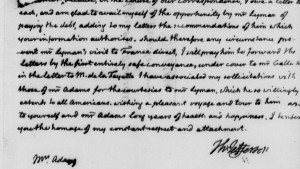 and am glad to avail myself of the opportunity by mr Lyman of
paying the debt, adding to my letter the recommendations of him which
your information authorises. should therefore any circumstance pre
vent mr Lyman's visit to France direct, I will pray him to forward the
letters by the first entirely safe conveyance, under cover to mr Galla
in the letter to M. de la Fayette I have associated my sollicitations with
those of mr Adams for the courtesies to mr Lyman, which he so willingly
extends to all Americans. wishing a pleasant voyage and tour to him
to yourself and mr Adams long years of health and happiness, I tender
you the homage of my constant respect and attachment.
Th: Jefferson
Mrs Adams